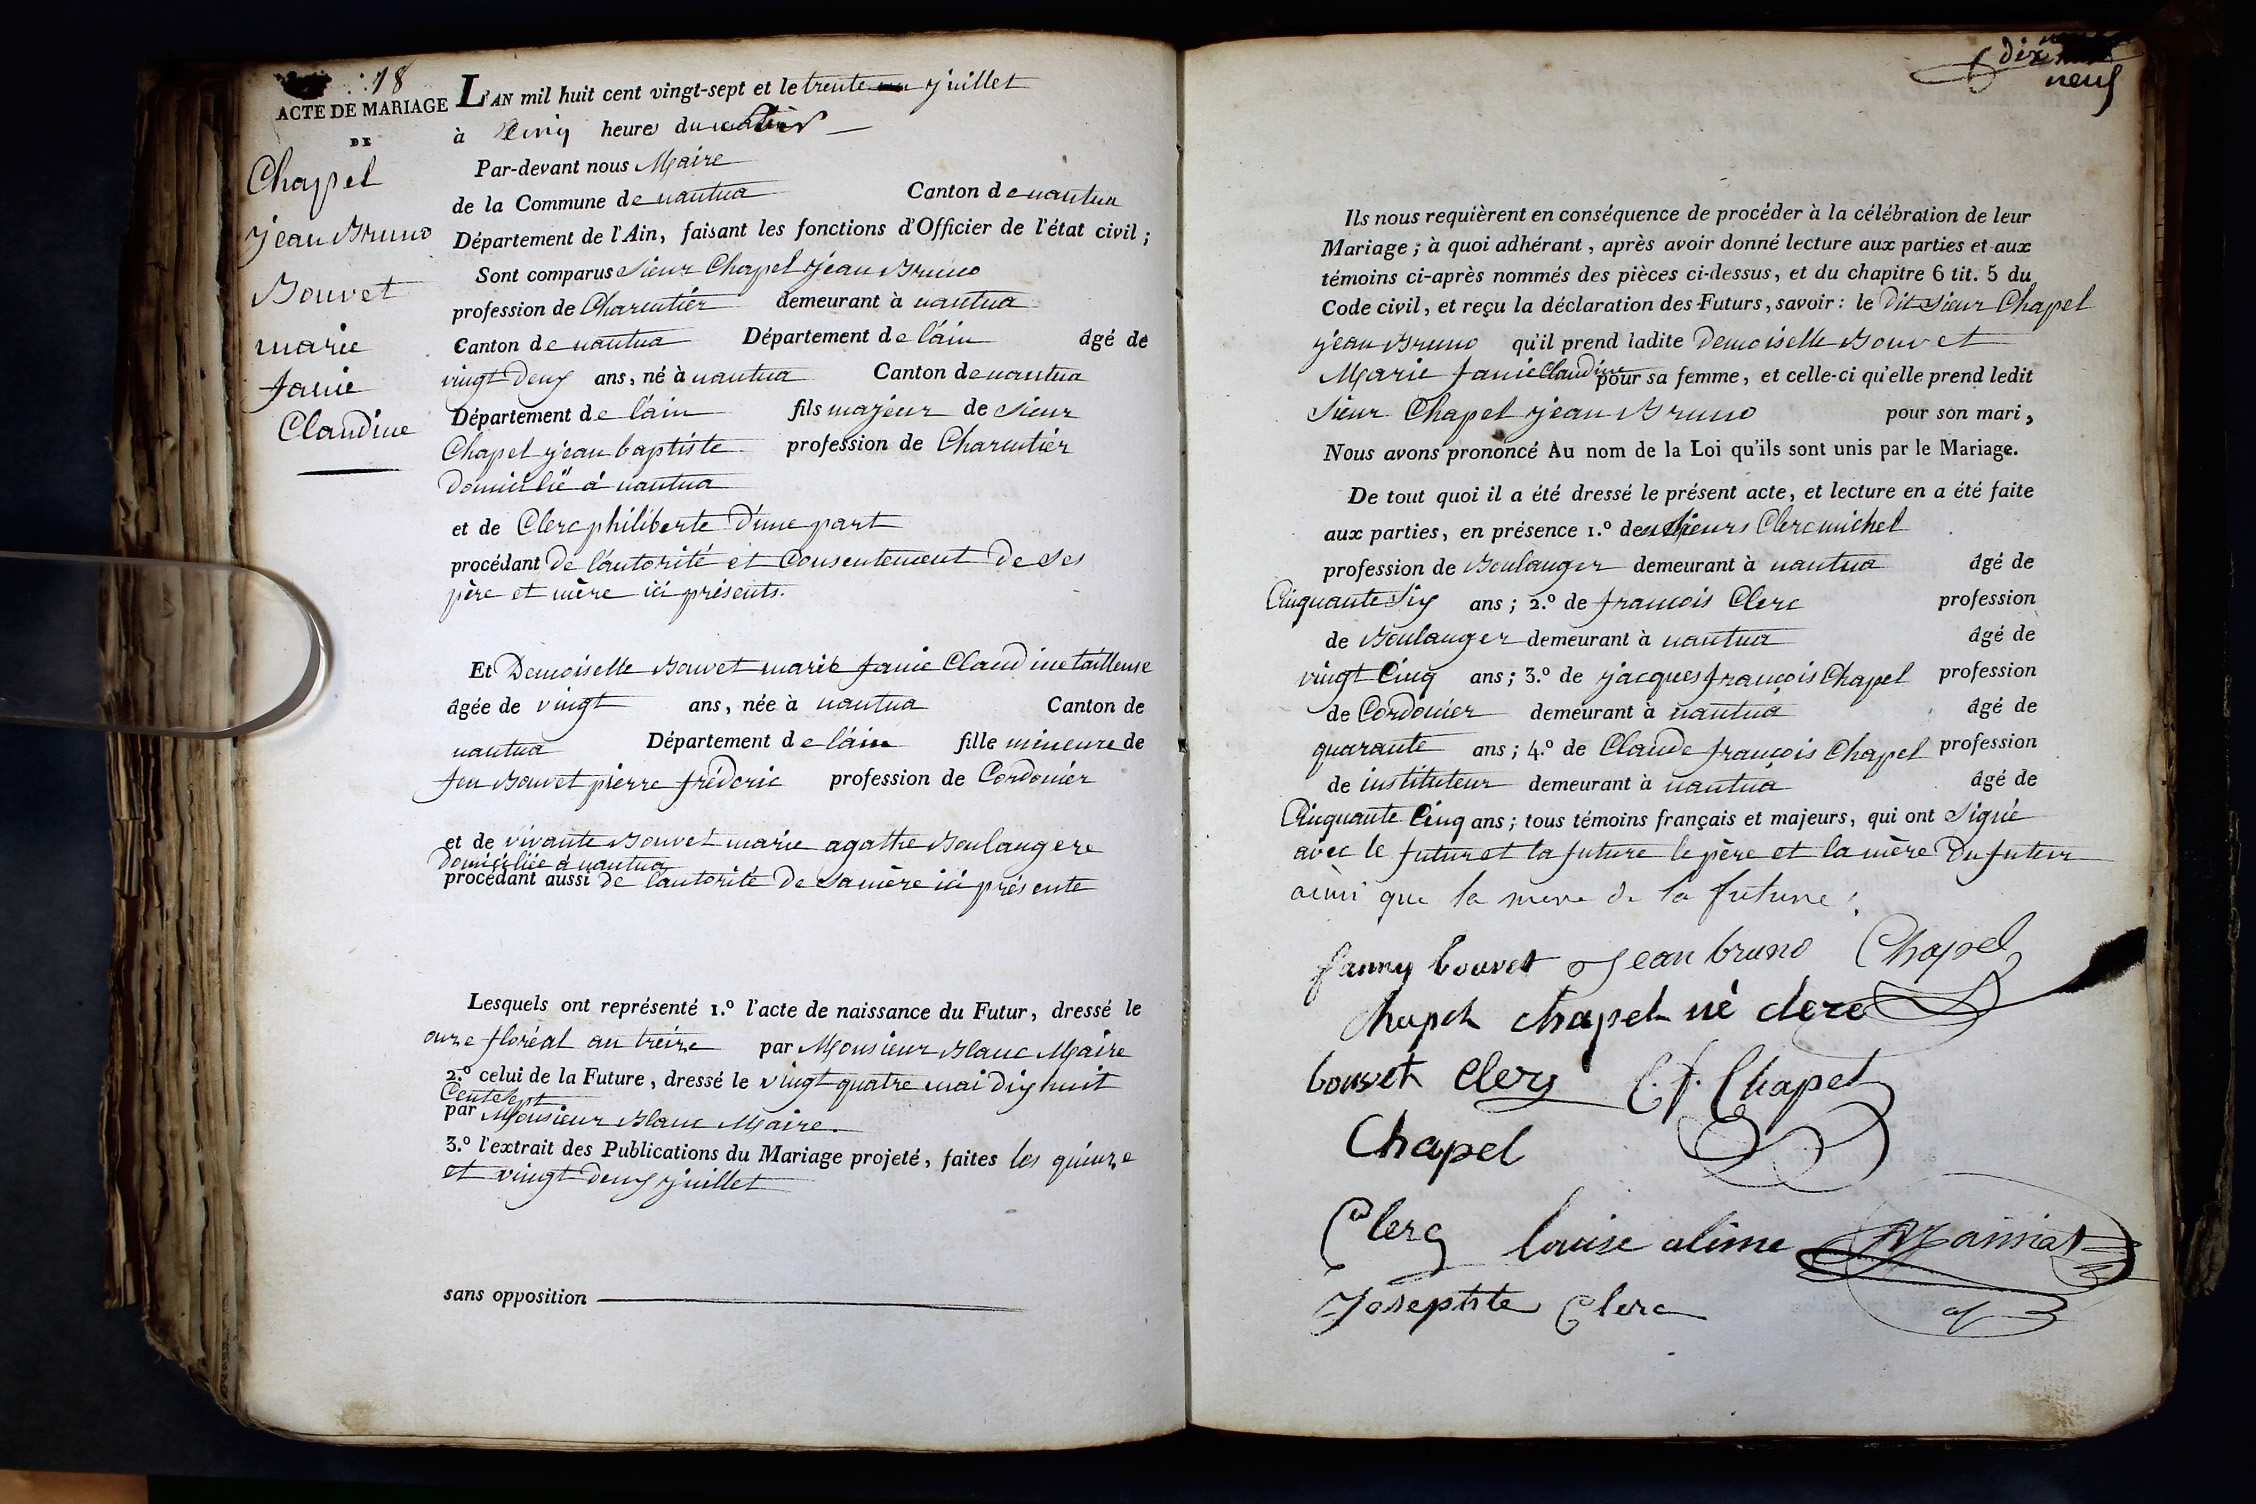 18
ACTE DE MARIAGE
DE
Chapel
jean Bruno
Bouvet
marie
fanie
Claudine
L'AN mil huit cent vingt-sept et le trente un juillet
à Cinq heures du
Par-devant nous Maire
de la Commune de nantua Canton de nantua
Département de l'Ain, faisant les fonctions d'Officier de l'état civil ;
Sont comparus sieur Chapel jean Bruno
profession de Charcutier demeurant à nantua
Canton de nantua Département de l'ain âgé de
vingt deux ans, né à nantua Canton de nantua
Département de l'ain fils majeur de sieur
Chapel jean baptiste profession de Charcutier
domicilié à nantua
et de Clerc philiberte d'une part
procédant de l'autorité et Consentement de ses
père et mère ici présents.
Et Demoiselle Bouvet marie fanie Claudine tailleuse
âgée de vingt ans, née à nantua Canton de
nantua Département de l'ain fille mineure de
feu Bouvet pierre frédéric profession de Cordonier
et de vivante Bouvet marie agathe Boulangere
domiciliée à nantua
procédant aussi de l'autorité de sa mère ici présente
Lesquels ont représenté 1.º l'acte de naissance du Futur, dressé le
onze floréal an treize par Monsieur Blanc Maire
2.º celui de la Future, dressé le vingt quatre mai dix huit
Cent sept
par Monsieur Blanc Maire.
3.º l'extrait des Publications du Mariage projeté, faites les quinze
et vingt deux juillet
sans opposition
dix
neuf
Ils nous requièrent en conséquence de procéder à la célébration de leur
Mariage ; à quoi adhérant, après avoir donné lecture aux parties et aux
témoins ci-après nommés des pièces ci-dessus, et du chapitre 6 tit. 5 du
Code civil, et reçu la déclaration des Futurs, savoir : le dit sieur Chapel
jean Bruno qu'il prend ladite demoiselle Bouvet
Marie fanie Claudine pour sa femme, et celle-ci qu'elle prend ledit
sieur Chapel jean Bruno pour son mari,
Nous avons prononcé Au nom de la Loi qu'ils sont unis par le Mariage.
De tout quoi il a été dressé le présent acte, et lecture en a été faite
aux parties, en présence 1.º de sieurs Clerc michel
profession de Boulanger demeurant à nantua âgé de
Cinquante six ans ; 2.º de françois Clerc profession
de Boulanger demeurant à nantua âgé de
vingt Cinq ans ; 3.º de jacques françois Chapel profession
de Cordonier demeurant à nantua âgé de
quarante ans ; 4.º de Claude françois Chapel profession
de instituteur demeurant à nantua âgé de
Cinquante Cinq ans ; tous témoins français et majeurs, qui ont signé
avec le futur et la future le père et la mère du futur
ainsi que la mere de la future.
fanny bouvet Jean bruno Chapel
chapel chapel né clerc
bouvet Clerc C. f. Chapel
Chapel
Clerc louise aline
Josephte Clerc